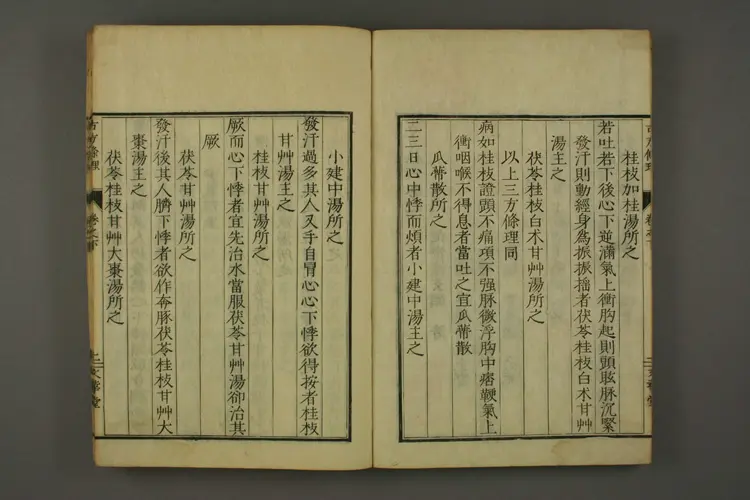 桂枝加桂湯所之
若吐若下後心下逆滿氣上衝胸起則頭眩脉沉緊
發汗則動經身為振振搖者茯苓桂枝白朮甘艸
湯主之
茯苓桂枝白朮甘艸湯所之
以上三方條理同
病如桂枝證頭不痛項不强脉微浮胸中痞鞕氣上
衝咽喉不得息者當吐之宜瓜蒂散
瓜蒂散所之
二三日心中悸而煩者小建中湯主之
小建中湯所之
發汗過多其人叉手自冒心心下悸欲得按者桂枝
甘艸湯主之
桂枝甘艸湯所之
厥而心下悸者宜先治水當服茯苓甘艸湯卻治其
厥
茯苓甘艸湯所之
發汗後其人臍下悸者欲作奔豚茯苓桂枝甘艸大
棗湯主之
茯苓桂枝甘艸大棗湯所之
古方條理
卷之下